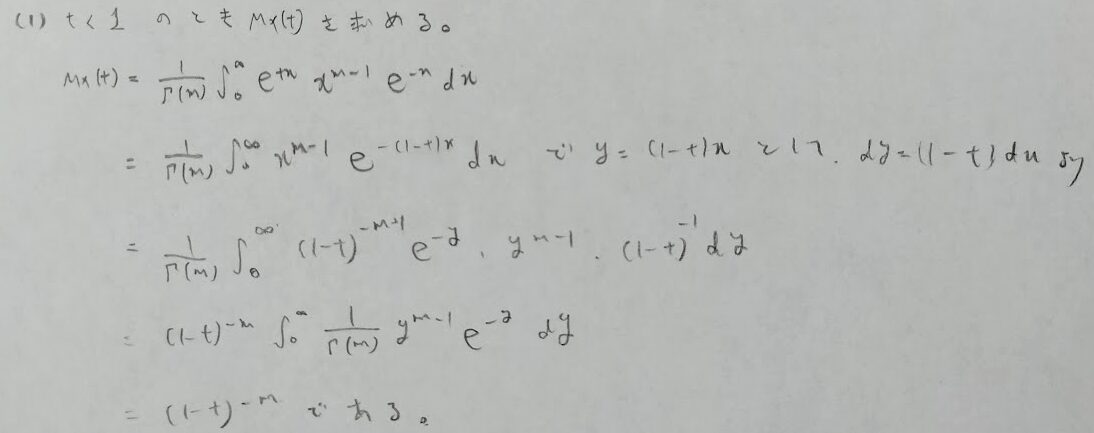 (1) t<1 のとき Mx(t) を求める。
Mx(t) = 1/Γ(m) ∫₀^∞ e^{tx} x^{m-1} e^{-x} dx
= 1/Γ(m) ∫₀^∞ x^{m-1} e^{-(1-t)x} dx で y = (1-t)x として、dy = (1-t) dx より
= 1/Γ(m) ∫₀^∞ (1-t)^{-m+1} e^{-y} · y^{m-1} · (1-t)^{-1} dy
= (1-t)^{-m} ∫₀^∞ 1/Γ(m) y^{m-1} e^{-y} dy
= (1-t)^{-m} である。